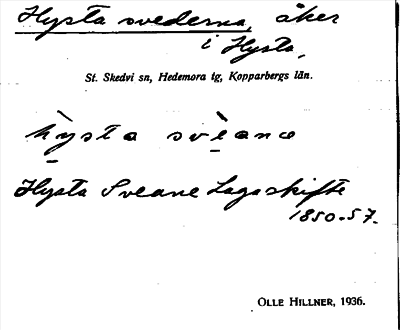 Hysta svederna, åker
i Hysta,
St. Skedvi sn, Hedemora tg, Kopparbergs län.
hỳsta svèanɑ
Hysta Sveane Laga skifte
1850-57.
OLLE HILLNER, 1936.